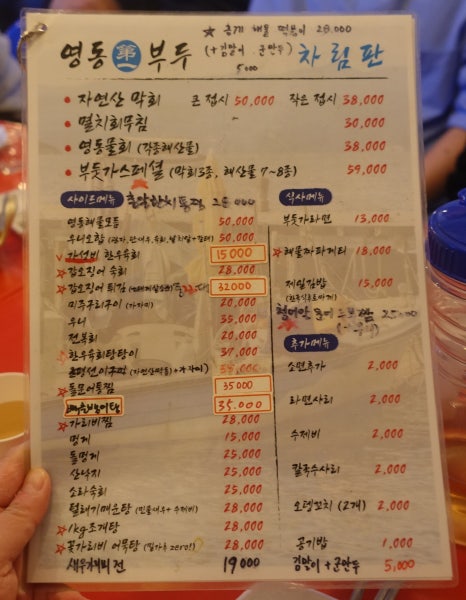 ★ 조개 해물 떡볶이 28,000
(+김말이, 군만두) 5000
영동 第一 부두 차림판
• 자연산 막회 큰접시 50,000 작은접시 38,000
• 멸치회무침 30,000
• 영동물회 (각종해산물) 38,000
• 부둣가스페셜 (막회3종, 해산물 7~8종) 59,000
사이드메뉴
영동해물모듬 50,000
50,000
한우육회 15000
★ 갑오징어 숙회 28,000
★ 갑오징어 튀김 32000
미주구리구이 (가자미) 20,000
우니 35,000
전복회 20,000
★ 한우육회탕탕이 37,000
★ 돌문어통찜 35000
35.000
★ 가리비찜 28,000
멍게 15,000
돌멍게 25,000
산낙지 25,000
소라숙회 25,000
털레기매운탕 (민물새우+수제비) 28,000
★ 1kg조개탕 28,000
★ 꽃가리비 어묵탕 (밀가루 zero!) 28,000
새우 전 19000
식사메뉴
부둣가라면 13,000
★ 해물짜파게티 18,000
제일김밥 15,000
추가메뉴
소면추가 2,000
라면사리 2,000
수제비 2,000
칼국수사리 2,000
오뎅꼬치 (2개) 2,000
공기밥 1,000
김말이 + 군만두 5,000